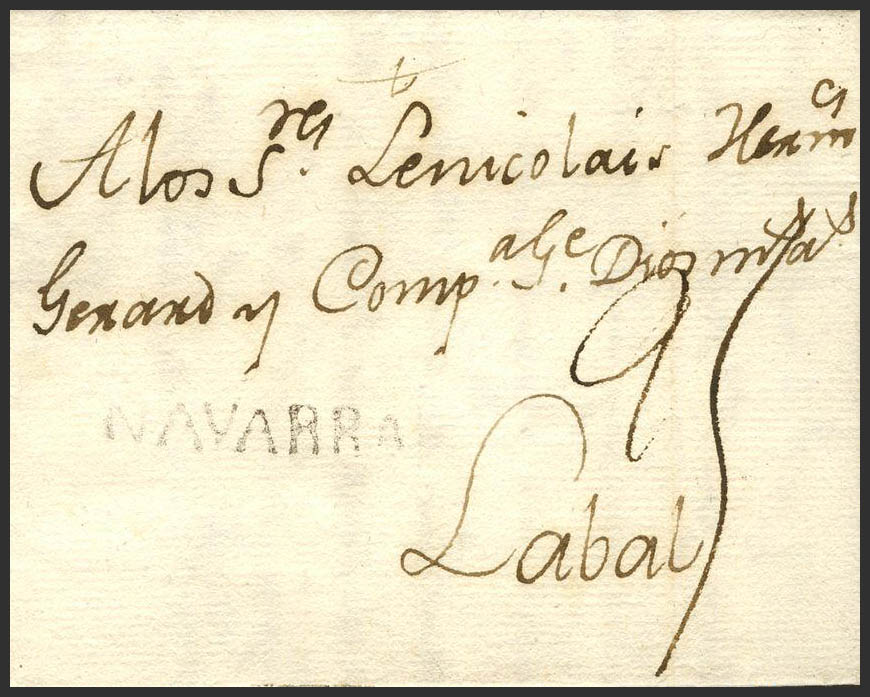 A los S.res Lenicolais Herm.os
Gerard y Comp.a G.e Dios m.s a.s
NAVARRA
Labal